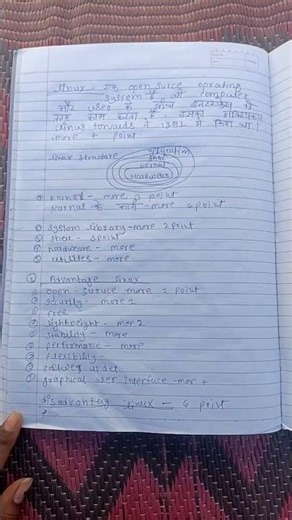 Linux - एक open surce oprating
system है जो computer
और user के बीच इन्टरफेस की
तरह काम करता है. इसका आविष्कार
Linus torvalds ने 1991 में किया था।
more 4 point
Linux structure
application
shell
kernal
Hardware
Kernal - more 2 point
Karnal के कार्य - more 6 point
System library - more 2 point
shell - 3 point
hardware - more
utilites - more
Advantage Linux
open - suruce more 2 point
Security - more 2
Free
lightweight - mor 2
stability - more
performance - more
flexibility -
software updet
graphical user interface - mor +
disadvantag Linux - 6 point